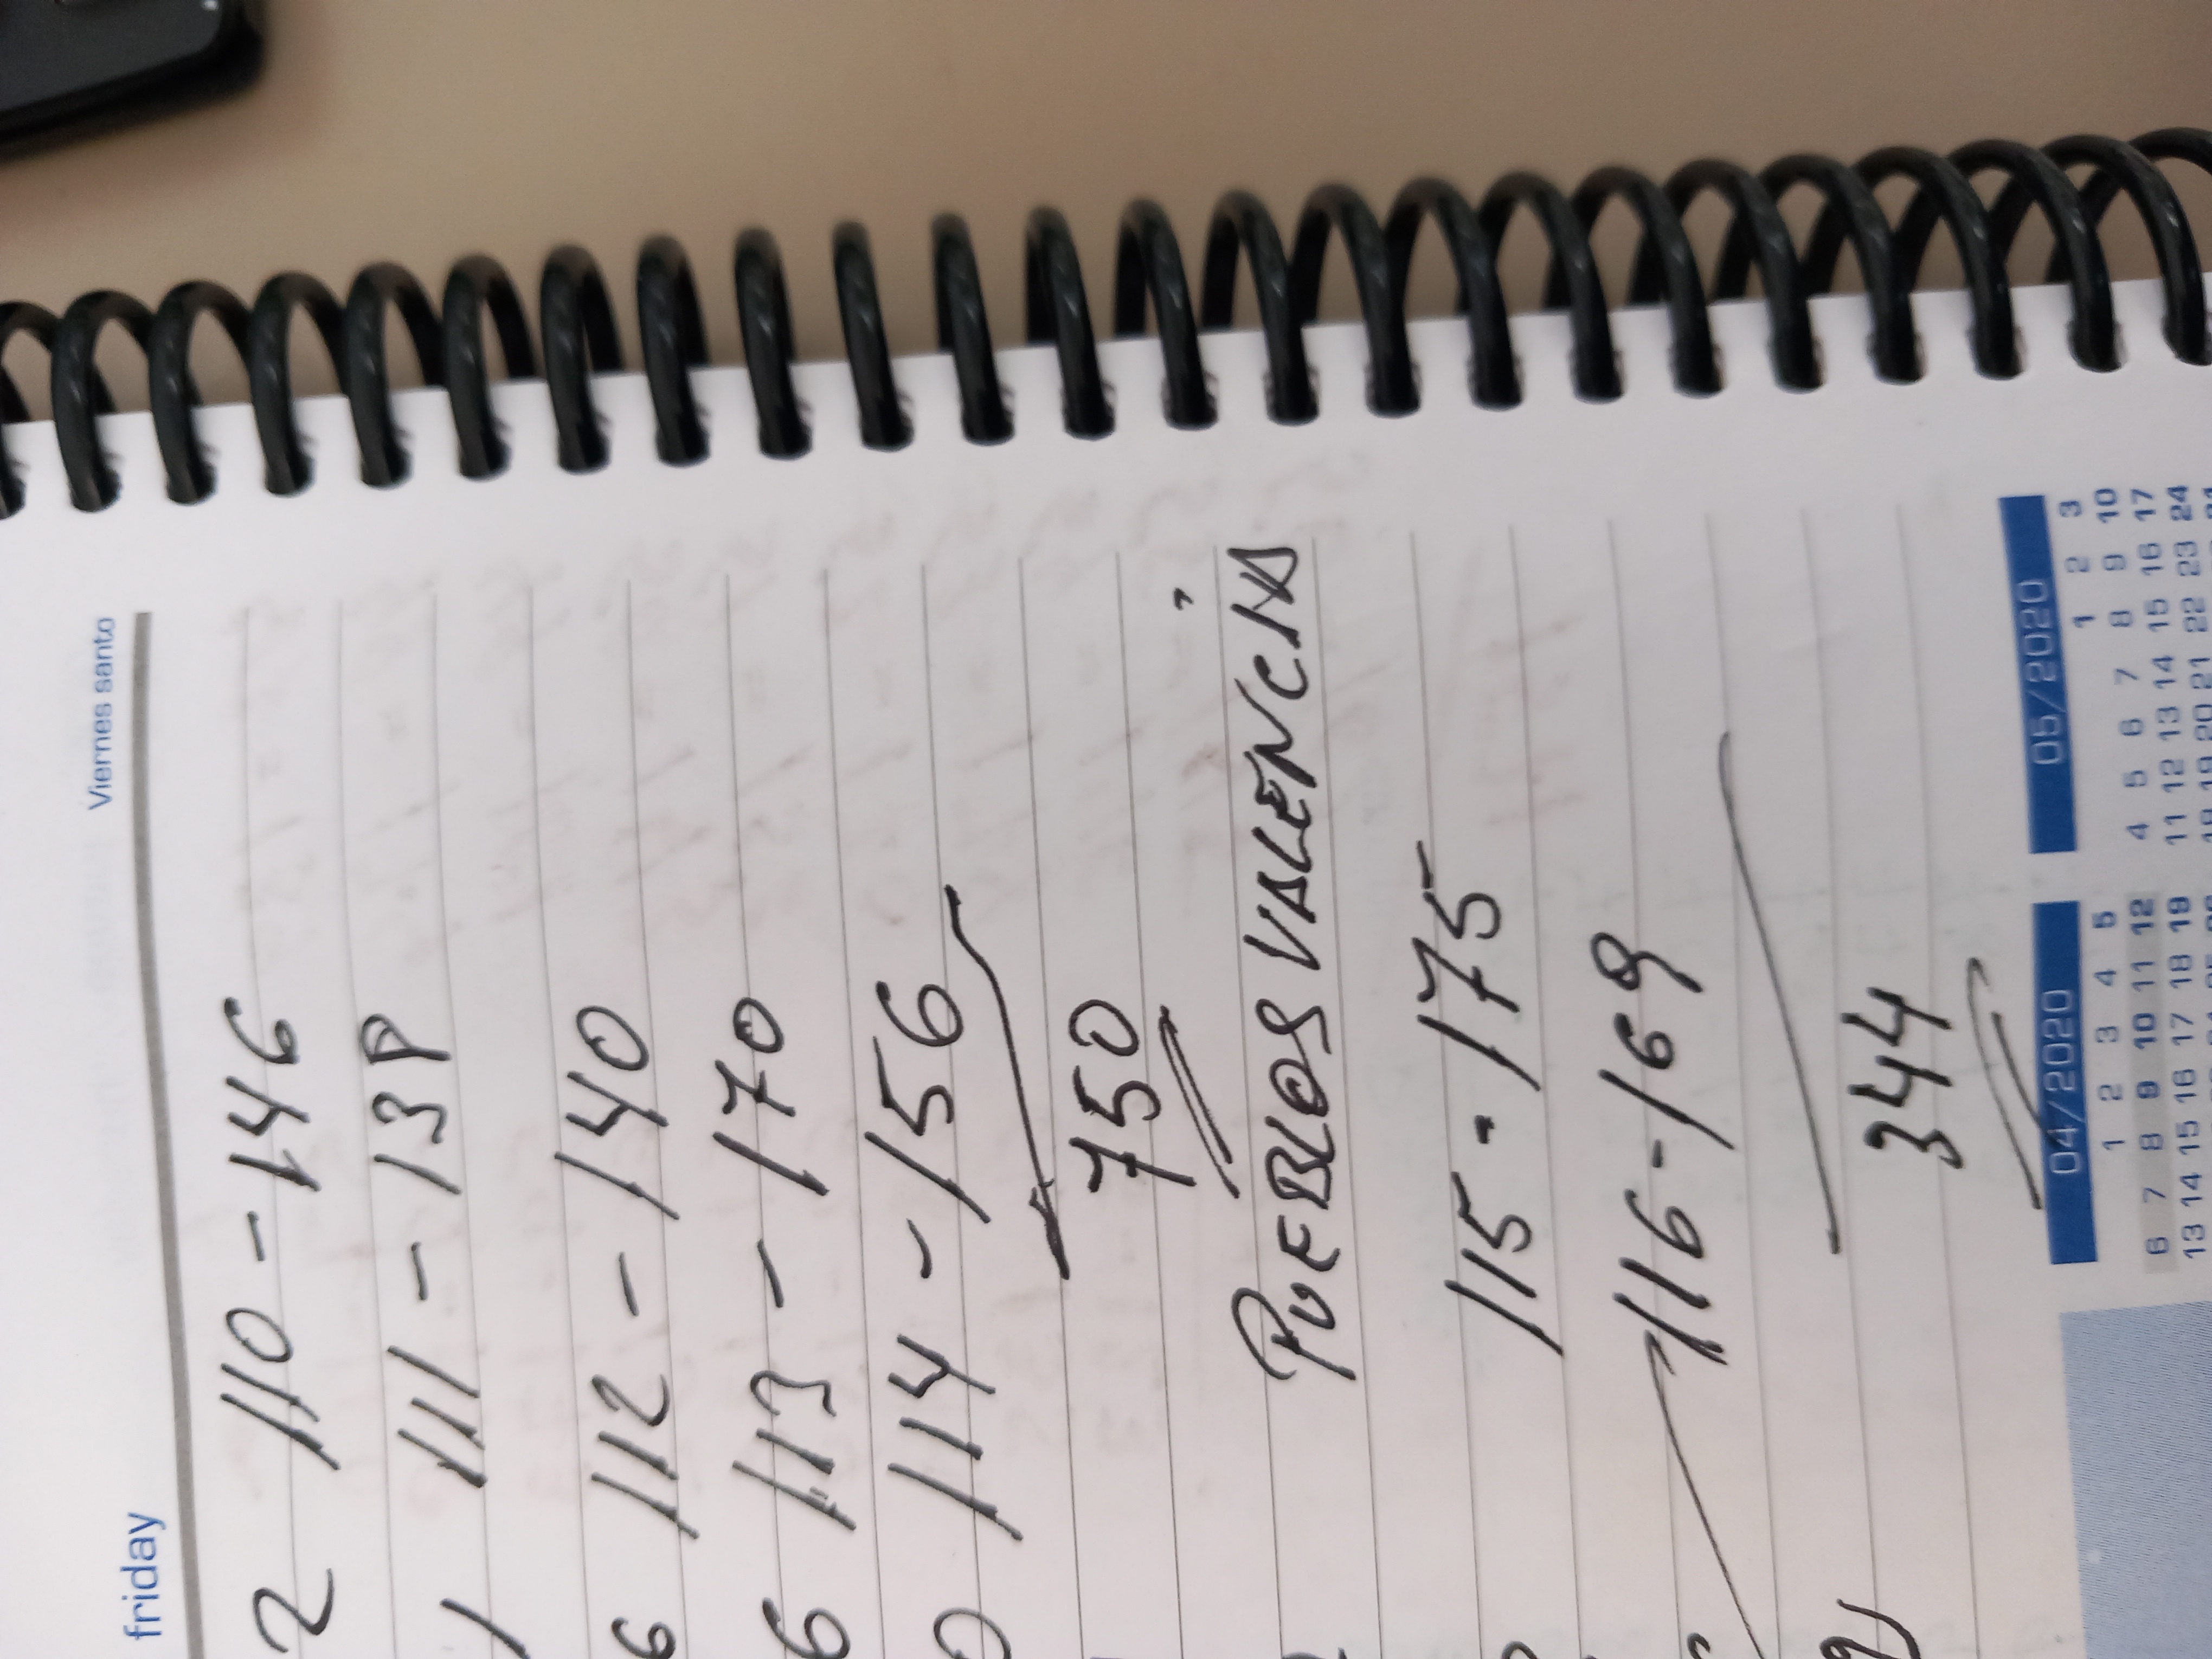 friday Viernes santo
2 110 - 146
1 111 - 138
6 112 - 140
6 113 - 170
0 114 - 156
750
PUEBLOS VALENCIA
115 - 175
116 - 169
344
04/2020 05/2020
1 2 3 4 5 1 2 3
6 7 8 9 10 11 12 4 5 6 7 8 9 10
13 14 15 16 17 18 19 11 12 13 14 15 16 17
20 21 22 23 24